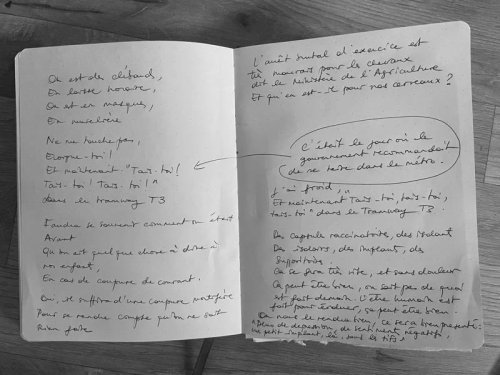 On est des clébards,
En laisse horaire,
On est en masques,
En muselière
Ne me touche pas,
Écarte-toi !
Et maintenant "Tais-toi !
Tais-toi ! Tais-toi !"
dans le tramway T3
Faudra se souvenir comment on était
Avant
Qu'on ait quelque chose à dire à
nos enfants,
En cas de coupure de courant.
Oui, il suffira d'une coupure
Pour se rendre compte qu'on ne sait
Rien faire
L'arrêt brutal d'exercice est
très mauvais pour les chevaux
dit le Ministère de l'Agriculture
Et qu'en est-il pour nos cerveaux ?
C'était le jour où le
gouvernement recommandait
de se taire dans le métro.
J'ai froid,
Et maintenant "Tais-toi, tais-toi,
tais-toi" dans le Tramway T3.
Des capsules vaccinatoires, des isolants
Des isoloirs, des implants, des
suppositoires.
Ça se fera très vite, et sans douleur
Ça peut être bien, on sait pas de quoi
est fait demain. L'être humain est
fait pour évoluer, ça peut être bien.
On nous le rendra bien, ce sera bien présenté :
"Plus de dépression, de sentiments négatifs,
un petit implant, là, sous les tifs"